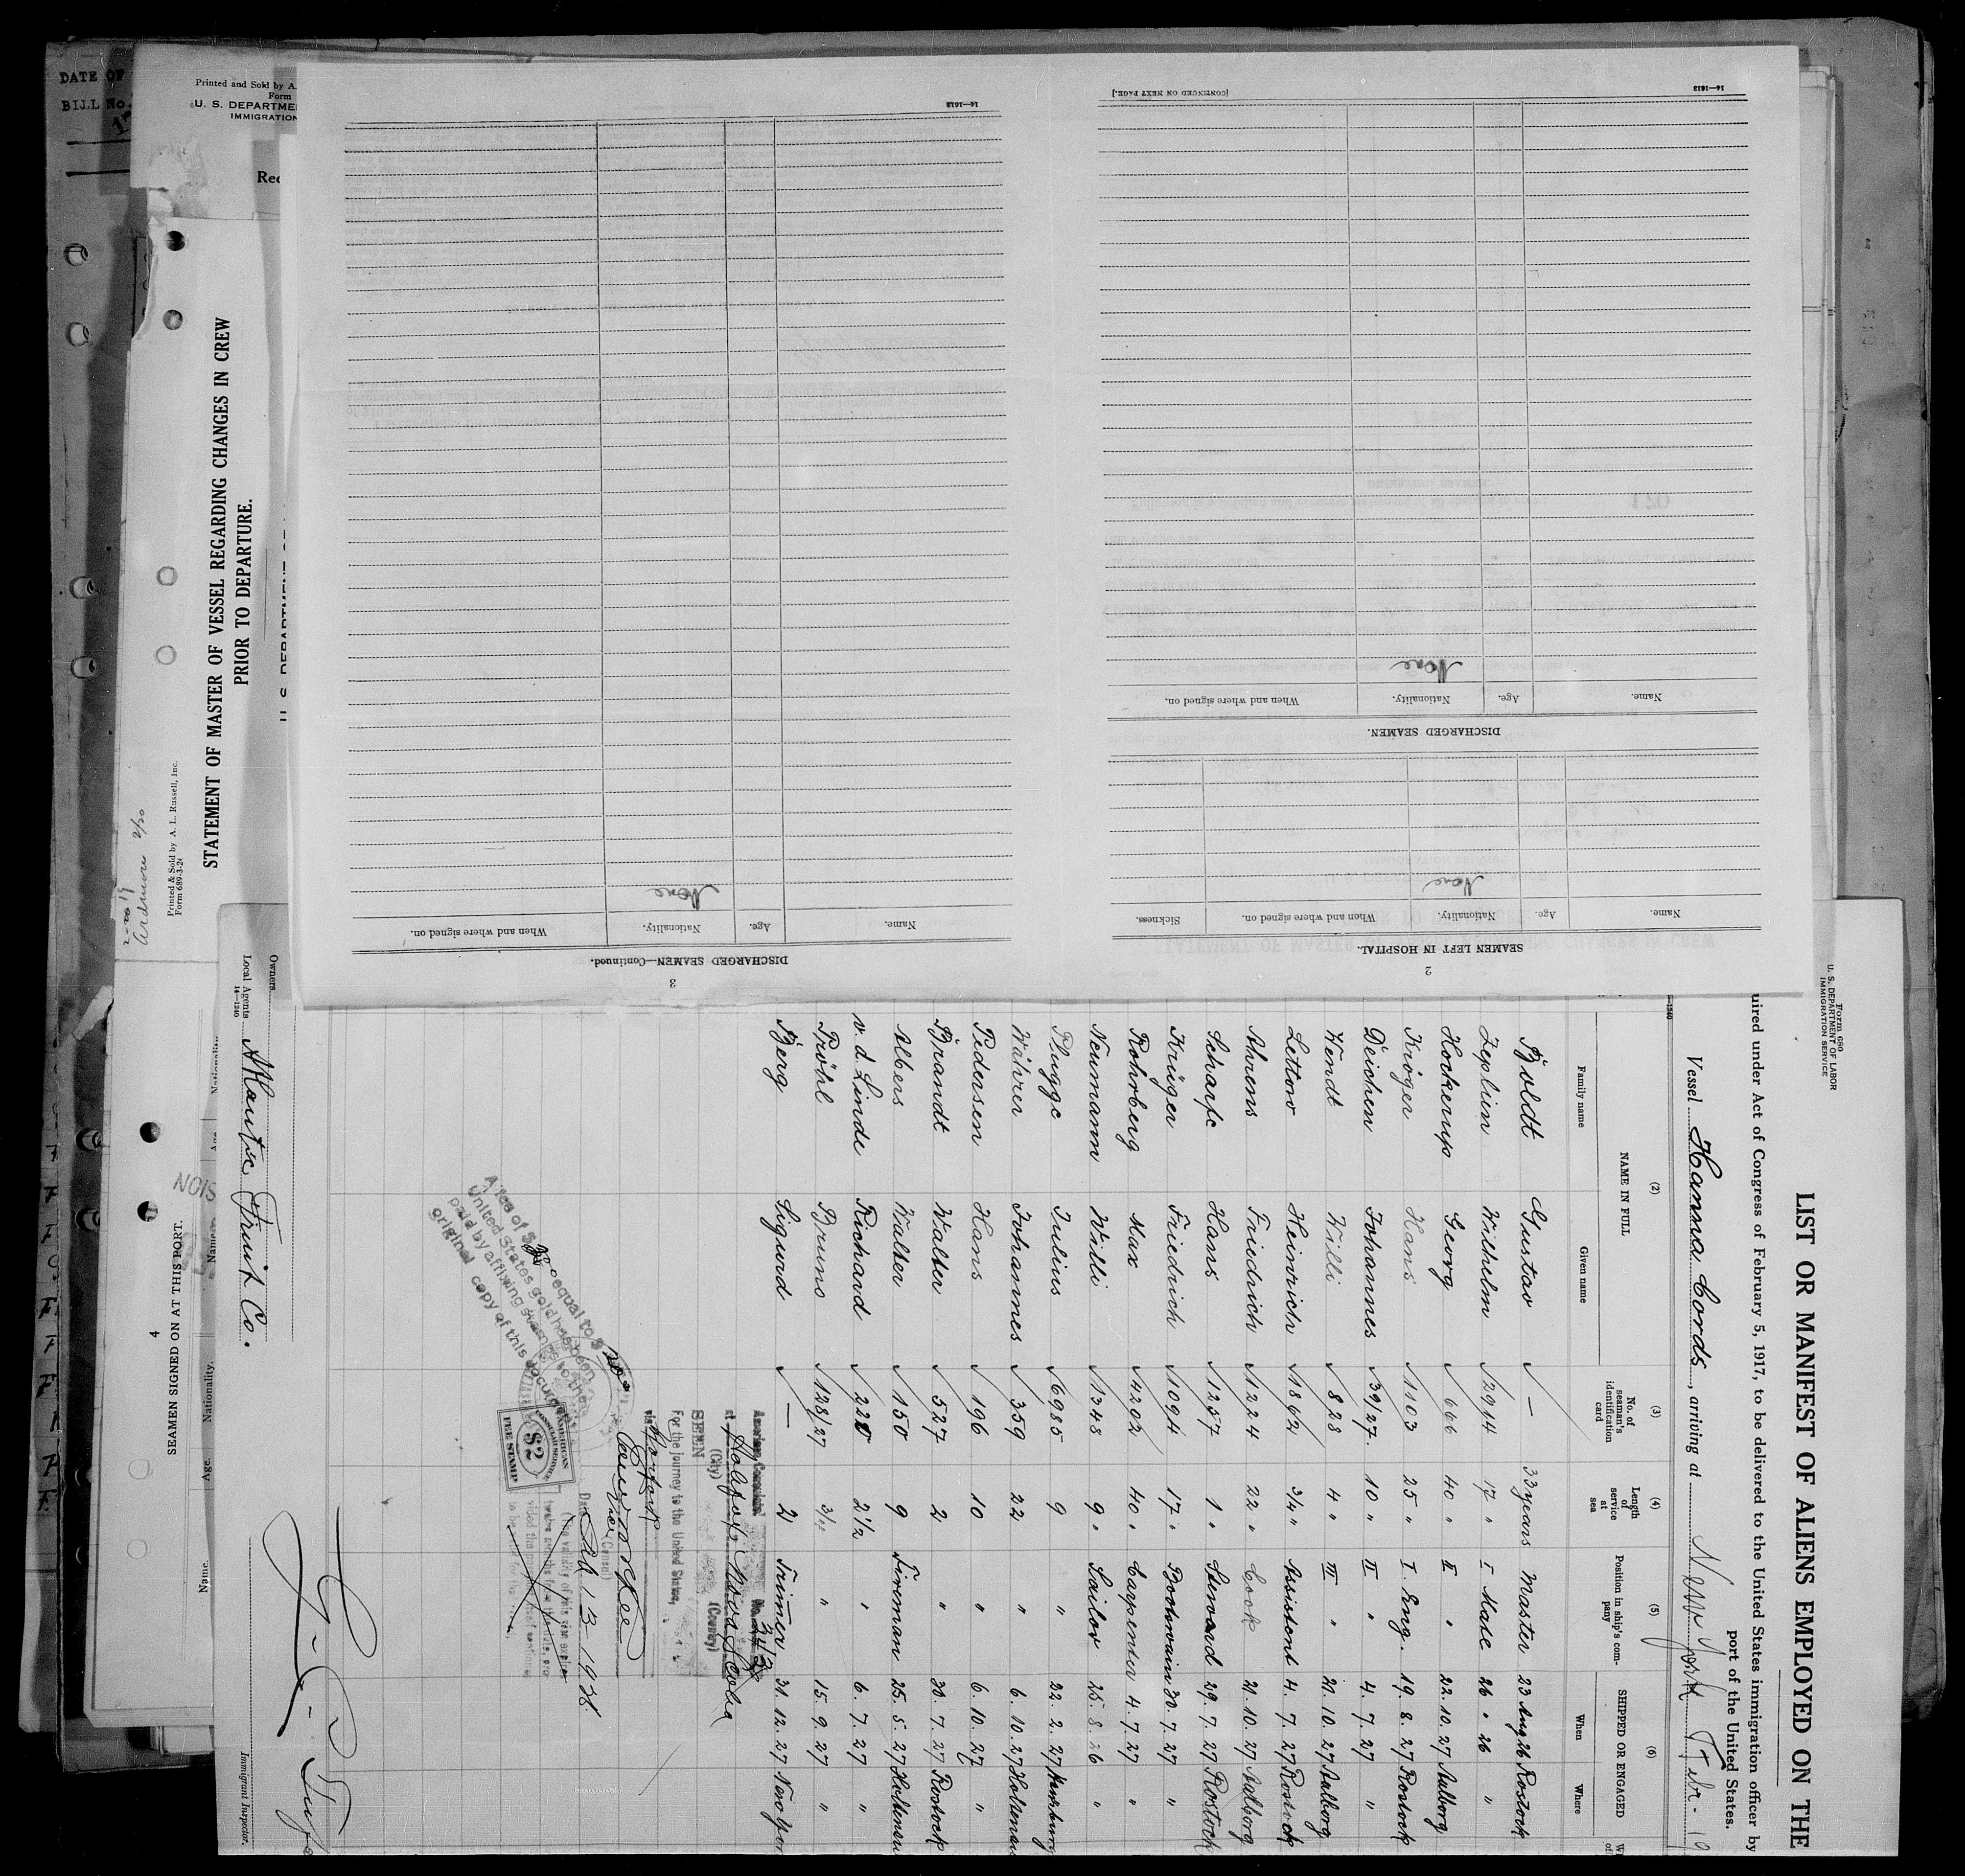 DATE OF
BILL No.
Printed and Sold by A.
Form
U. S. DEPARTMEN
IMMIGRATION
Rec
STATEMENT OF MASTER OF VESSEL REGARDING CHANGES IN CREW
PRIOR TO DEPARTURE.
Printed & Sold by A. L. Russell, Inc.
Form 689-3-2
Ardmore 2/20
4
SEAMEN SIGNED ON AT THIS PORT.
Name. Age. Nationality.
Name. Age. Nationality.
2
SEAMEN LEFT IN HOSPITAL.
Name. Age. Nationality. When and where signed on. Sickness.
None
DISCHARGED SEAMEN.
Name. Age. Nationality. When and where signed on.
None
14—1613
[CONTINUED ON NEXT PAGE.]
3
DISCHARGED SEAMEN—Continued.
Name. Age. Nationality. When and where signed on.
None
14—1613
Form 680
U. S. DEPARTMENT OF LABOR
IMMIGRATION SERVICE
LIST OR MANIFEST OF ALIENS EMPLOYED ON THE
uired under Act of Congress of February 5, 1917, to be delivered to the United States immigration officer by
port of the United States.
Vessel Hanna Cords, arriving at New York Febr. 19
(2) (3) (4) (5) (6)
NAME IN FULL No. of seaman's identification card Length of service at sea Position in ship's company SHIPPED OR ENGAGED
Family name Given name When Where
Boldt Gustav — 33 years Master 23 Aug 26 Rostock
Zeplien Wilhelm 2914 17 " I Mate 26 " 26 "
Hockerup Georg 666 40 " II " 22. 10. 27 Aalborg
Kröger Hans 1103 25 " I Eng. 19. 8. 27 Rostock
Deichen Johannes 39/27. 10 " II " 4. 7. 27 "
Wendt Willi 823 4 " III " 20. 10. 27 Aalborg
Lettow Heinrich 1892 3/4 " Assistent 4. 7. 27 Rostock
Ahrens Friedrich 1224 22 " Cook 21. 10. 27 Aalborg
Scharfe Hans 1257 1 " Steward 29. 7. 27 Rostock
Krüger Friedrich 1094 17 " Bootswain 30. 7. 27 "
Rohrberg Max 4202 40 " Carpenter 4. 7. 27 "
Neumann Willi 1348 9 " Sailor 25. 8. 26 "
Plugge Julius 6985 9 " 22. 2. 27 Hamburg
Währer Johannes 359 22 " 6. 10. 27 Holtenau
Pedersen Hans 196 10 " 6. 10. 27 "
Brandt Walter 527 2 " 30. 7. 27 Rostock
Albers Walter 150 9 Fireman 25. 5. 27 Holtenau
v. d. Linde Richard 220 2 1/2 " 6. 7. 27 "
Pröhl Bruno 128/27 3/4 " 15. 9. 27 "
Berg Sigurd — 2 Trimmer 31. 12. 27 New York
American Consulate No. 343
at Halifax, Nova Scotia
(City) (Country)
SEEN
For the journey to the United States,
via Norfolk
Vice (Consul)
Date Feb 13 1928
A fee of $2.00 equal to $2.00
United States gold has been
paid by affixing stamps to the
original copy of this document
AMERICAN
CONSULAR SERVICE
$2
FEE STAMP
Owners
Local Agents Atlantic Fruit Co.
14—1240
Immigrant Inspector.